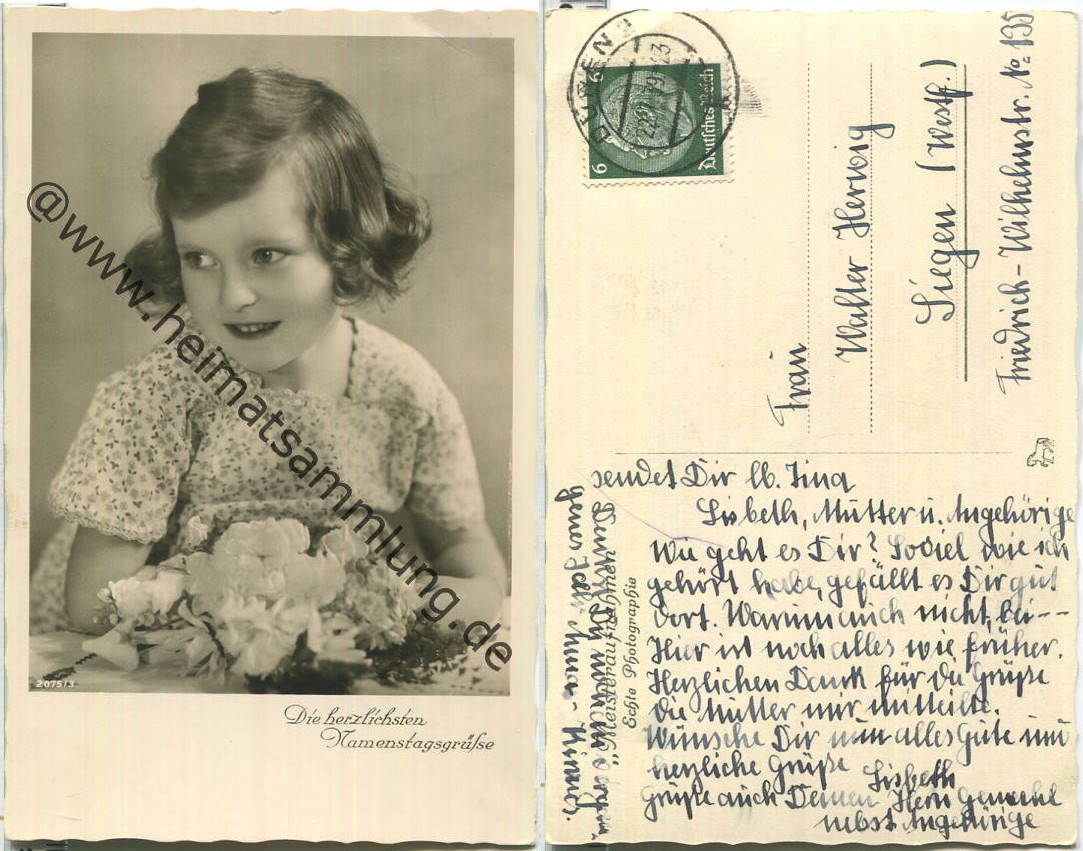 @www.heimatsammlung.de
2075/3
Die herzlichsten
Namenstagsgrüße
DÜREN 2
6
6
Deutsches Reich
Frau
Walter Herwig
Siegen (Westf.)
Friedrich-Wilhelmstr. No: 135
"Meisteraufnahmen"
Echte Photographie
sendet Dir lb. Tina
Lisbeth, Mutter u. Angehörige
Wie geht es Dir? Soviel wie ich
gehört habe, gefällt es Dir gut
dort. Warum auch nicht, bei---
Hier ist noch alles wie früher.
Herzlichen Dank für die Grüße
die Mutter mir mitteilte.
Wünsche Dir nun alles Gute und
herzliche Grüße
Lisbeth
Grüße auch Deinen Herrn Gemahl
nebst Angehörige